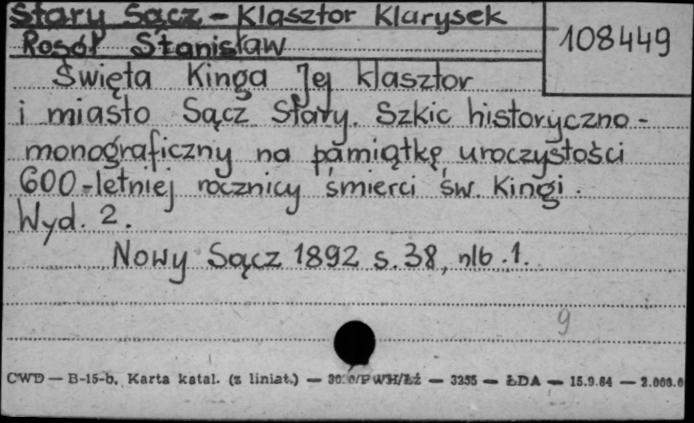 Stary Sącz - Klasztor Klarysek
108449
Rosół Stanisław
Święta Kinga Jej klasztor
i miasto Sącz Stary. Szkic historyczno-
monograficzny na pamiątkę uroczystości
600-letniej rocznicy śmierci św. Kingi.
Wyd. 2.
Nowy Sącz 1892 s. 38, nlb. 1.
9
CWD — B-15-b. Karta katal. (z liniat.) — /PWH/Łź — 3255 — ŁDA — 15.9.64 — 2.000.0